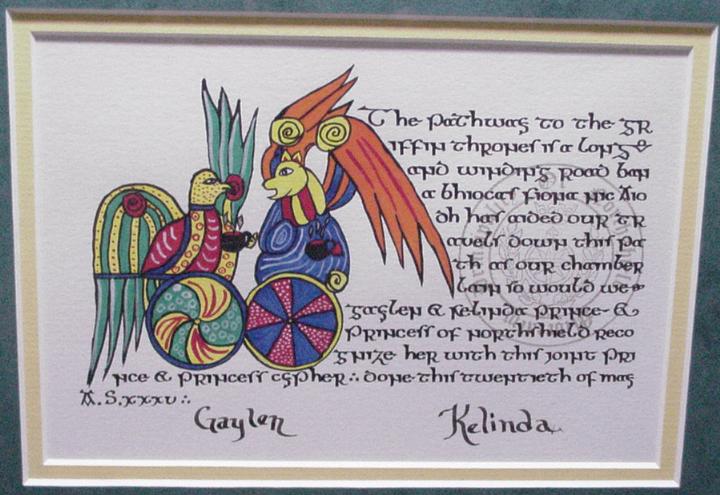 The pathway to the gr
iffin thrones is a long &
and winding road ban
a bhiocas fiona nic Aio
dh has aided our tr
avels down this pa
th as our chamber
lain so would we
gaylen & kelinda prince &
princess of northshield reco
gnize her with this joint pri
nce & princess cypher ∴ done this twentieth of may
A.S.xxxv ∴
Gaylen Kelinda